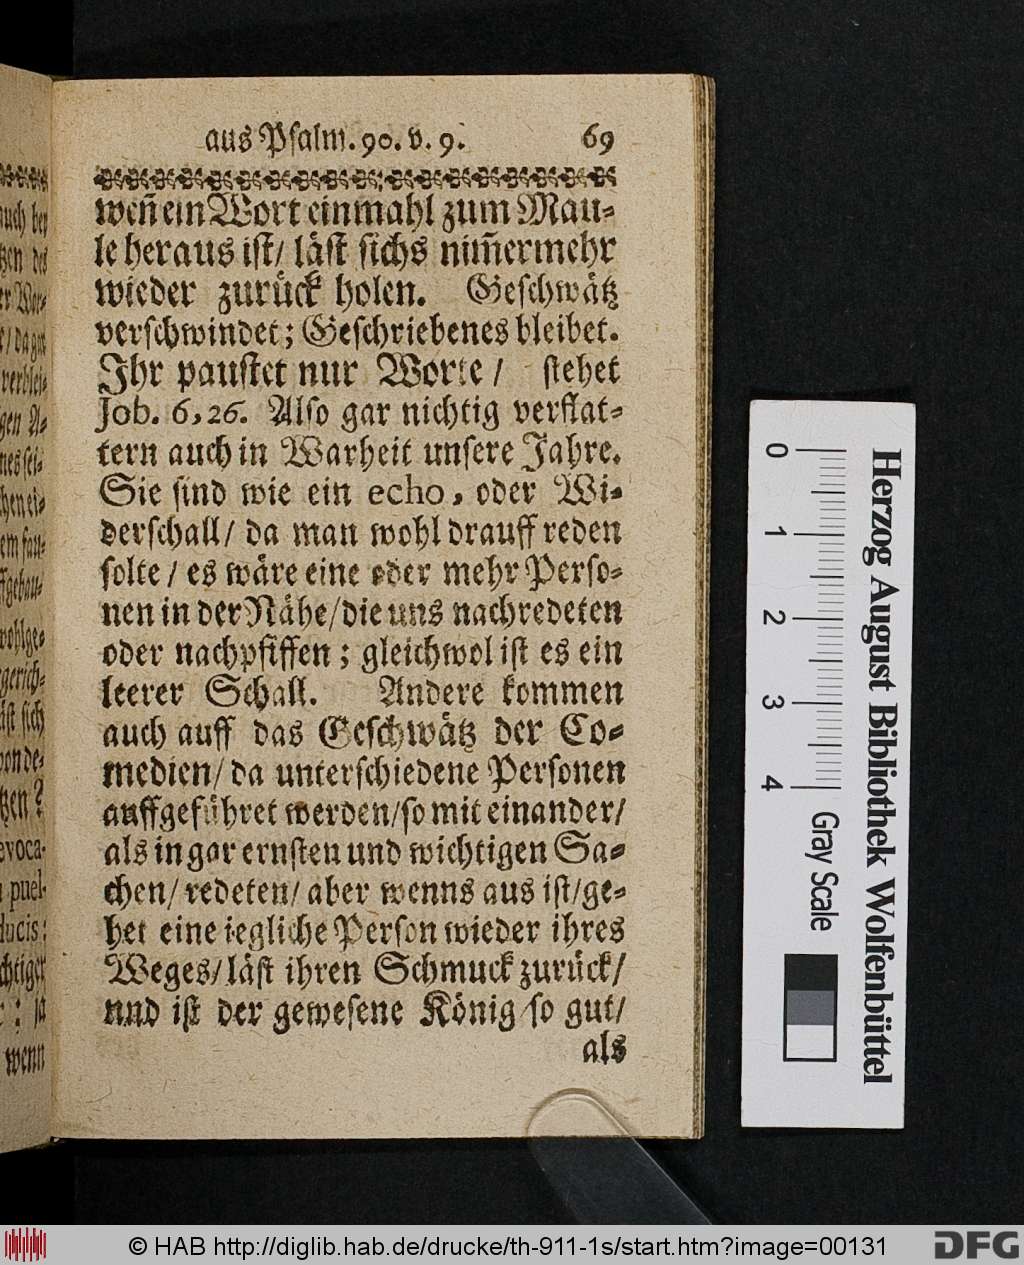 aus Psalm. 90. v. 9. 69
weñ ein Wort einmahl zum Mau-
le heraus ist/ läst sichs nim̃ermehr
wieder zurück holen. Geschwätz
verschwindet; Geschriebenes bleibet.
Ihr paustet nur Worte/ stehet
Job. 6, 26. Also gar nichtig verflat-
tern auch in Warheit unsere Jahre.
Sie sind wie ein echo, oder Wi-
derschall/ da man wohl drauff reden
solte/ es wäre eine oder mehr Perso-
nen in der Nähe/ die uns nachredeten
oder nachpfiffen; gleichwol ist es ein
leerer Schall. Andere kommen
auch auff das Geschwätz der Co-
medien/ da unterschiedene Personen
auffgeführet werden/ so mit einander/
als in gar ernsten und wichtigen Sa-
chen/ redeten/ aber wenns aus ist/ ge-
het eine iegliche Person wieder ihres
Weges/ läst ihren Schmuck zurück/
und ist der gewesene König so gut/
als
auch bey
tzen des
er Wor-
e/ da gar
verblei-
gen A-
nes sei-
chen ei-
em sau-
ffgebau-
wohlge-
gerich-
äst sich
von de-
tzen?
evoca-
puel-
lucis:
chtiger
: ja
wenn
0 1 2 3 4
Gray Scale
Herzog August Bibliothek Wolfenbüttel
© HAB http://diglib.hab.de/drucke/th-911-1s/start.htm?image=00131
DFG